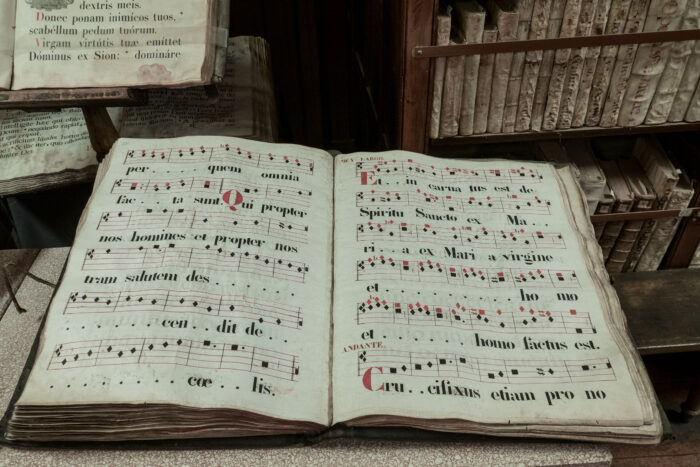 dextris meis.
Donec ponam inimicos tuos,
scabéllum pedum tuórum.
Virgam virtútis tuæ emíttet
Dóminus ex Sion: domináre
per quem omnia
fac . . ta sunt. Qui propter
nos homines et propter nos
tram salutem des . . . . .
. . . . . . . . . cen . . dit de . .
. . . . . . . . . . cœ . . lis.
LARGO.
Et . . in carna tus est de
Spiritu Sancto ex Ma . .
ri . . . a ex Mari a virgine
et . . . . . . . . . ho mo
et . . . . . . . homo factus est.
ANDANTE.
Cru . . cifixus etiam pro no